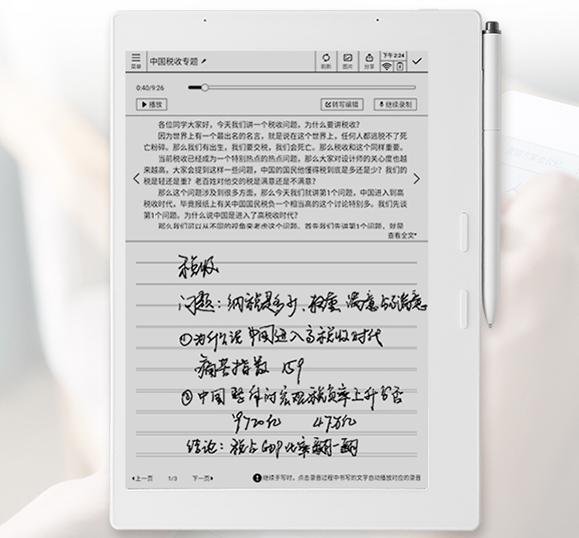 菜单 中国税收专题 刷新 图片 分享 下午2:24
0:40/9:26
播放 转写编辑 继续录制
各位同学大家好，今天我们讲一个税收问题，为什么要讲税收？
因为世界上有一个最出名的名言，就是说在这个世界上，任何人都逃脱不了死
亡粉碎。那么我们有出生，我们要交税，我们会死亡。那么税收和这个同样重要。
当前税收已经成为一个特别热点的热点问题，那么大家对设计师的关心度也越
来越高，大家会提到这样一些问题，中国的国民他懂得税到底是多还是少？我们的
税是轻还是重？老百姓对他交的税是满意还是不满意？
那么这个问题涉及到很多方面，那么今天我们就讲第1个问题，中国进入到高
税收时代，毕竟报纸上有关中国国民税负一个相当高的这个讨论特别多。我们先谈
第1个问题。为什么说中国是进入了高税收时代？
那么我们可以从不同的视角来考虑这个问题，首先我们先讲第1个问题，就是
查看全文
税收
问题：纳税是多少、轻重、满意与不满意
①为什么说中国进入高税收时代
痛苦指数 159
②中国整体的宏观税负率上升与否
9720亿 478亿
结论：税占GDP比率翻一翻
上一页 1/3 下一页 继续手写时，点击录音过程中书写的文字自动播放对应的录音